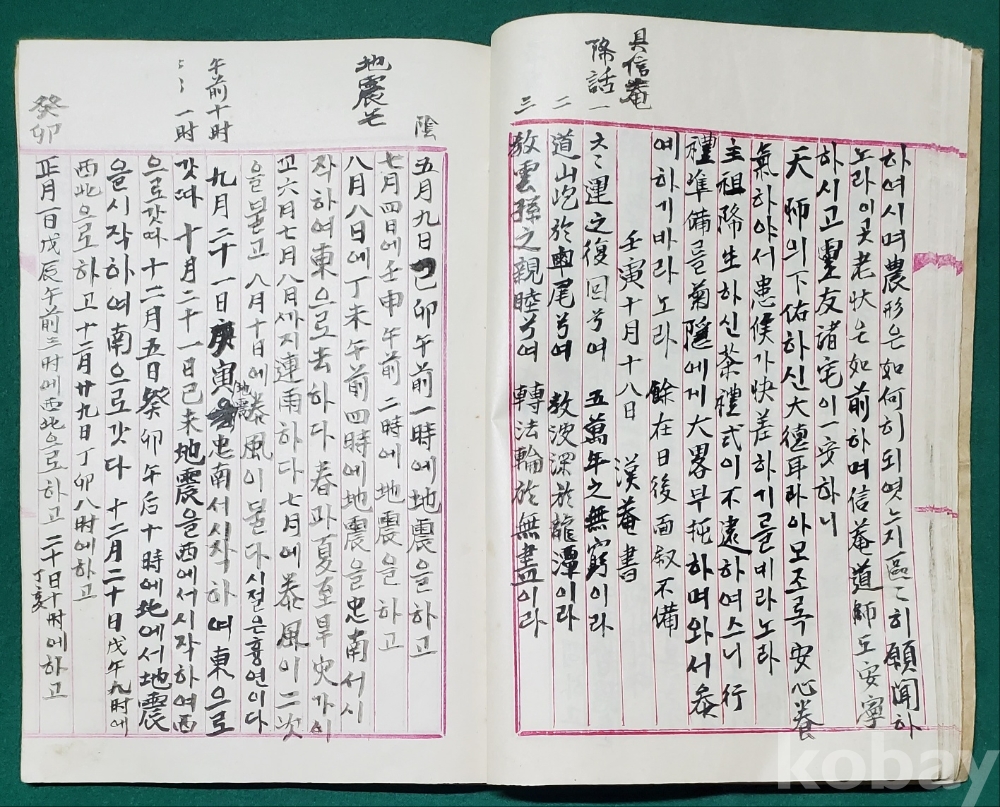 하여시며農形은如何히되엿는지區〻히願聞하
노라이곳老狀은如前하며信菴道師도安寧
하시고靈友諸宅이一安하니
天師의下佑하신大德耳라아모조록安心養
氣하야서患候가快差하기를비라노라
主祖降生하신茶禮式이不遠하여스니行
禮準備를菊隱에게大畧부托하며와서參
예하기바라노라 餘在日後面叙不備
壬寅十月十八日 漢菴書
具信菴
降話
一 天運之復回兮여 五萬年之無窮이라
二 道山屹於龜尾兮여 敎波深於龍潭이라
三 敎雲孫之親睦兮여 轉法輪於無盡이라
地震은
陰五月九日己卯午前一時에地震을하고
七月四日에壬申午前二時에地震을하고
八月八日에丁未午前四時에地震을忠南서시
작하여東으로去하다春과夏至旱災가이
고六月七月八月까지連雨하다七月에泰風이二次
을불고八月十日에泰風이불다시절은흉연이다
午前十時 九月二十一日庚寅地震을忠南서시작하여東으로
〃 〃 一時 갓따十月二十一日己未地震을西에서시작하여西
으로갓따十二月五日癸卯午后十時에北에서地震
을시작하여南으로갓다十二月二十日戊午九時에
西北으로하고十二月廿九日丁卯八时에하고
癸卯 正月一日戊辰午前三时에西北으로하고二十日丁亥十时에하고
kobay